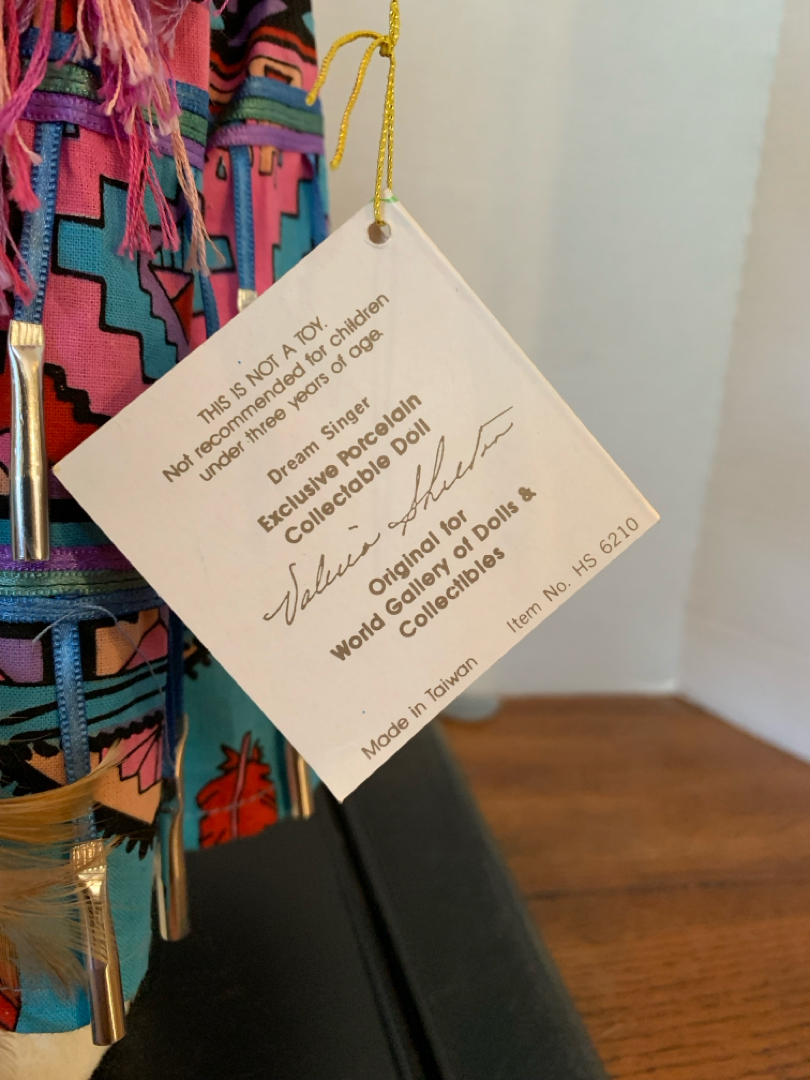 THIS IS NOT A TOY.
Not recommended for children
under three years of age.
Dream Singer
Exclusive Porcelain
Collectable Doll
Valerie
Original for
World Gallery of Dolls &
Collectibles
Item No. HS 6210
Made in Taiwan